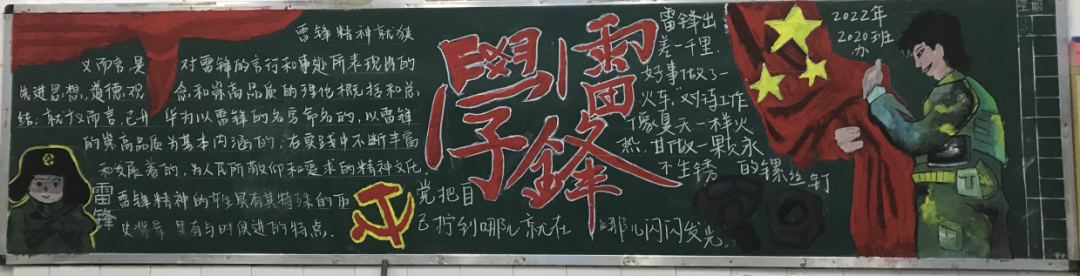 雷锋精神就狭
义而言,是对雷锋的言行和事迹所表现出的
先进思想,道德观念和崇高品质的理论概括和总
结;就广义而言,已升华为以雷锋的名字命名的,以雷锋
的崇高品质为基本内涵的,在实践中不断丰富
和发展着的,为人民所敬仰和要求的精神文化
雷锋精神的产生具有其特殊的历
史背景具有与时俱进的特点.
雷锋
學雷鋒
雷锋出
差一千里,
好事做了一
火车,"对待工作
像夏天一样火
热,甘做一颗永
不生锈的镙丝钉
党把自
己拧到哪儿就在哪儿闪闪发光.
2022年
2020班
办
星期